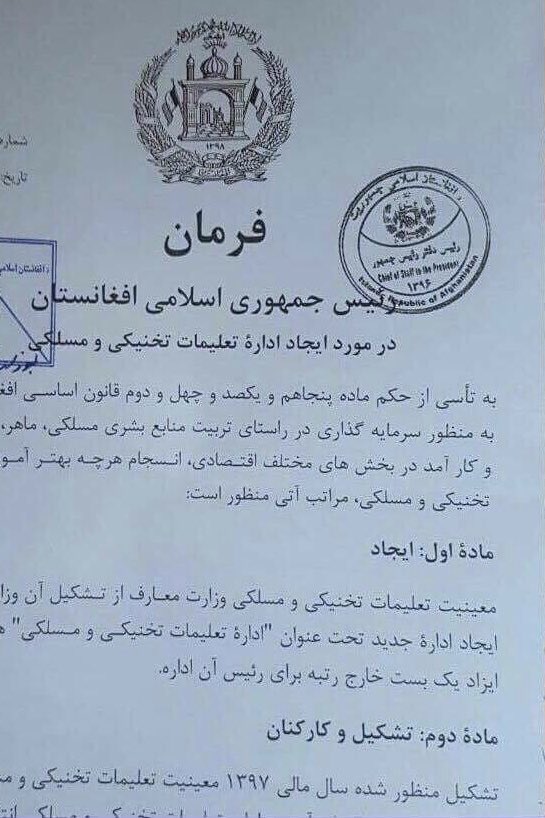 ۱۲۹۸
شماره
تاریخ:
فرمان
د افغانستان اسلامی جمهوریت
رئیس دفتر رئیس جمهور
Chief of Staff to the President
۱۳۹۶
Islamic Republic of Afghanistan
رئیس جمهوری اسلامی افغانستان
در مورد ایجاد ادارۀ تعلیمات تخنیکی و مسلکی
به تأسی از حکم ماده پنجاهم و یکصد و چهل و دوم قانون اساسی
به منظور سرمایه گذاری در راستای تربیت منابع بشری مسلکی، ماهر،
و کار آمد در بخش های مختلف اقتصادی، انسجام هرچه بهتر
تخنیکی و مسلکی، مراتب آتی منظور است:
مادۀ اول: ایجاد
معینیت تعلیمات تخنیکی و مسلکی وزارت معارف از تشکیل آن
ایجاد ادارۀ جدید تحت عنوان "ادارۀ تعلیمات تخنیکی و مسلکی"
ایزاد یک بست خارج رتبه برای رئیس آن اداره.
مادۀ دوم: تشکیل و کارکنان
تشکیل منظور شده سال مالی ۱۳۹۷ معینیت تعلیمات تخنیکی و